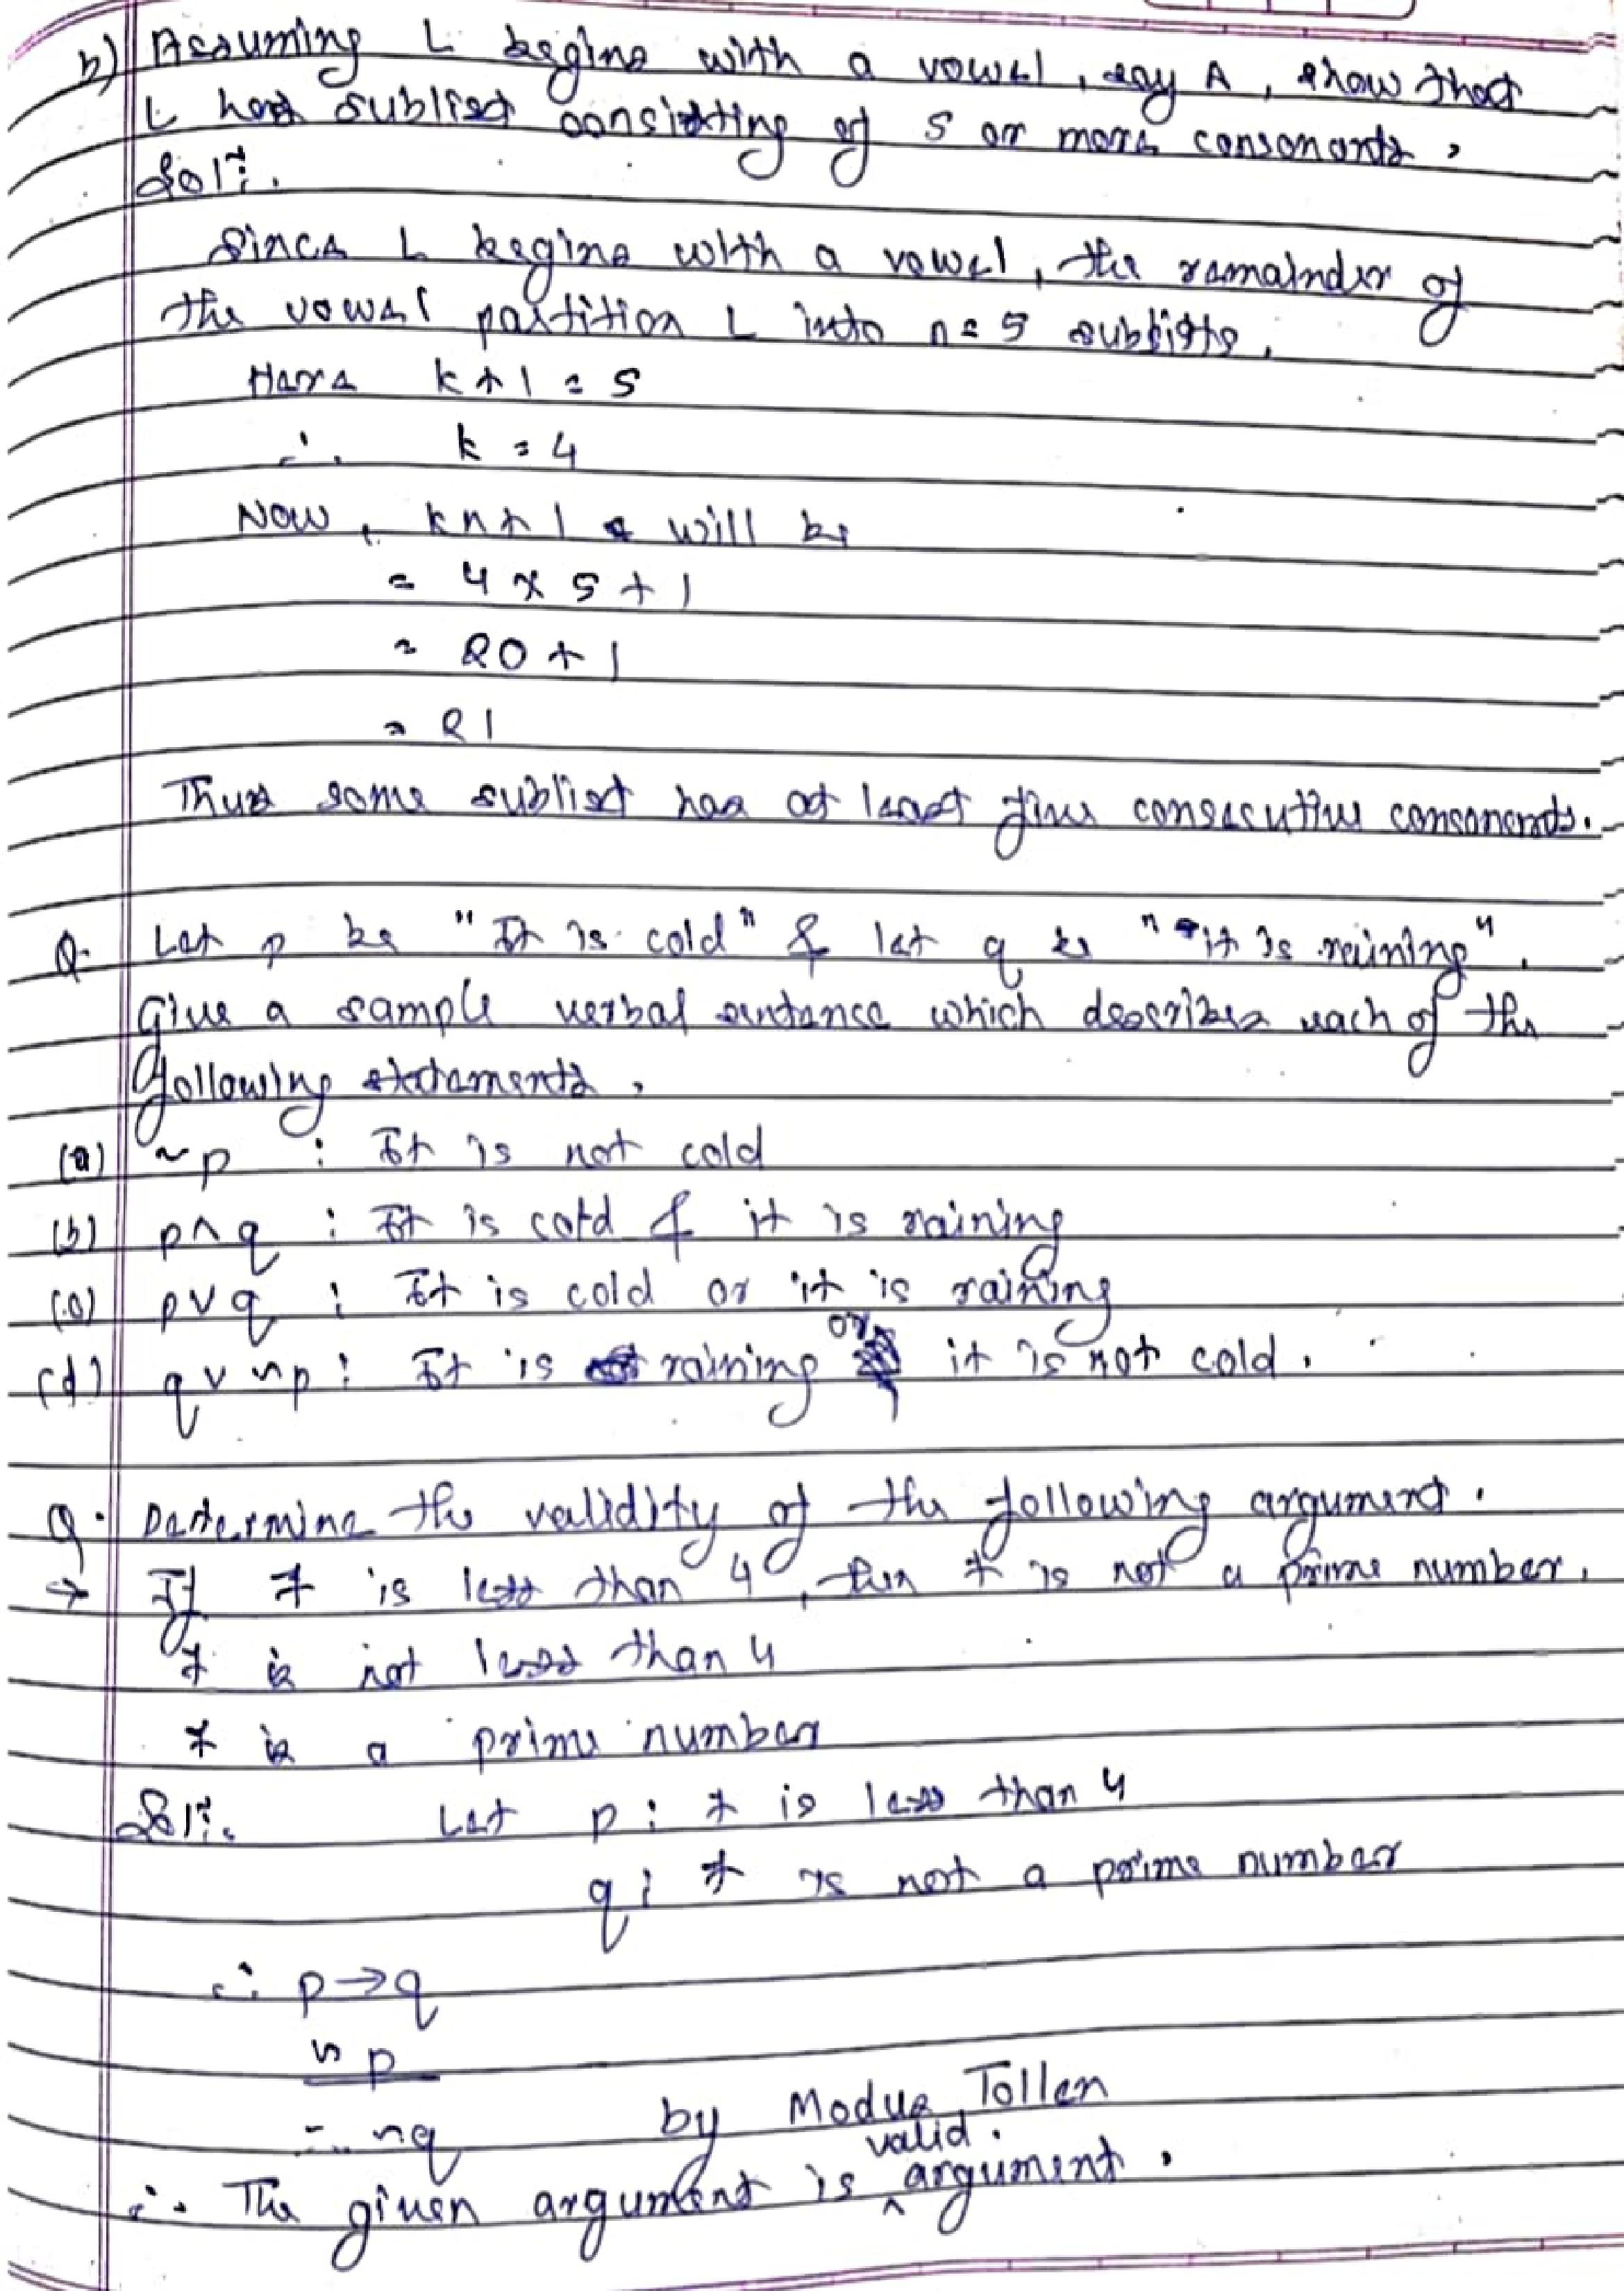 b) Assuming L begins with a vowel, say A, show that
L has sublist consisting of 5 or more consonants.
Solⁿ:.
Since L begins with a vowel, the remainder of
the vowel partition L into n = 5 sublists.
Here k + 1 = 5
∴ k = 4
Now, kn + 1 will be
= 4 × 5 + 1
= 20 + 1
= 21
Thus some sublist has at least five consecutive consonants.
Q. Let p be "It is cold" & let q be "it is raining".
Give a sample verbal sentance which describes each of the
following statements.
(a) ~p : It is not cold
(b) p∧q : It is cold & it is raining
(c) p∨q : It is cold or it is raining
(d) q∨~p : It is raining or it is not cold.
Q. Determine the validity of the following argument.
→ If 7 is less than 4, then 7 is not a prime number.
7 is not less than 4
7 is a prime number
Solⁿ:. Let p : 7 is less than 4
q : 7 is not a prime number
∴ p→q
~p
∴ ~q by Modus Tollen
∴ The given argument is valid argument.